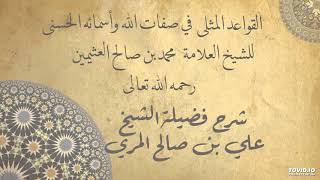 القواعد المثلى في صفات الله وأسمائه الحسنى
للشيخ العلامة محمد بن صالح العثيمين
رحمه الله تعالى
شرح فضيلة الشيخ
علي بن صالح المري
TOVID.IO